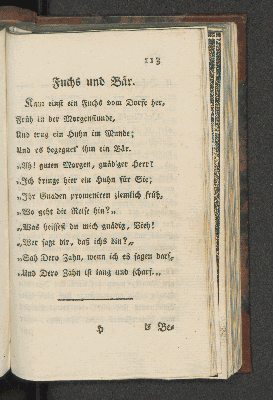 113
Fuchs und Bär.
Kam einst ein Fuchs vom Dorfe her,
Früh in der Morgenstunde,
Und trug ein Huhn im Munde;
Und es begegnet' ihm ein Bär.
„Ah! guten Morgen, gnäd'ger Herr!
„Ich bringe hier ein Huhn für Sie;
„Ihr Gnaden promeniren ziemlich früh,
„Wo geht die Reise hin?“
„Was heissest du mich gnädig, Vieh!
„Wer sagt dir, daß ichs bin?“
„Sah Dero Zahn, wenn ich es sagen darf,
„Und Dero Zahn ist lang und scharf.“
H ls Be-